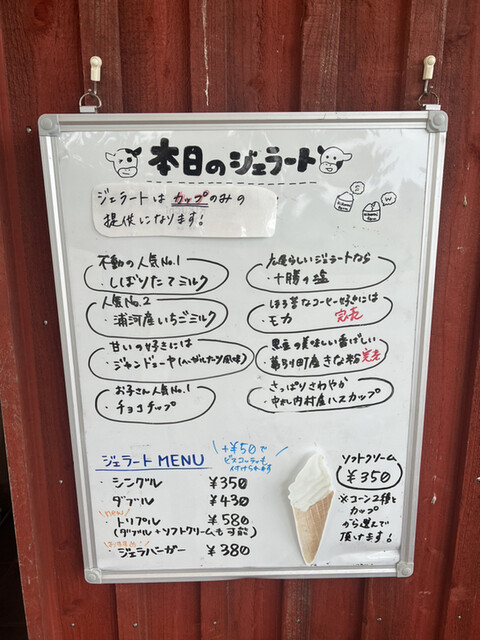 本日のジェラート
ジェラートは カップのみの
提供になります!
不動の人気No.1
・しぼりたてミルク
人気No.2
・浦河産いちごミルク
甘いの好きには
・ジャンドゥーヤ(ヘーゼルナッツ風味)
お子さん人気No.1
・チョコチップ
広尾らしいジェラートなら
・十勝の塩
ほろ苦なコーヒー好きには
・モカ 完売
黒豆の美味しい香ばしい
・幕別町産きな粉 完売
さっぱりさわやか
・中札内村産ハスカップ
S
W
ジェラート MENU
+¥50で
ビスコッティも
付けられます
・シングル ¥350
ダブル ¥430
new
・トリプル ¥580
(ダブル+ソフトクリームも可能)
おすすめ!
・ジェラバーガー ¥380
ソフトクリーム
¥350
※コーン2種と
カップ
から選んで
頂けます!